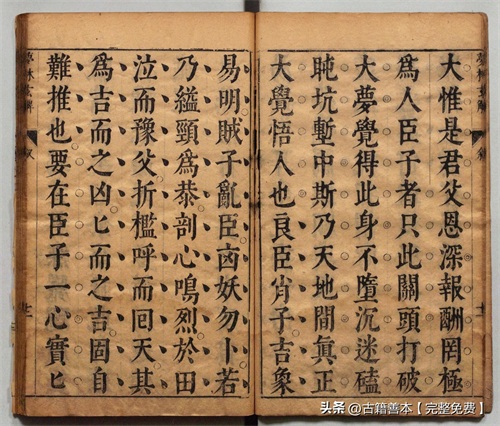 大惟是君父恩深報酬罔極
為人臣子者只此關頭打破
大夢覺得此身不墮沉迷磕
盹坑塹中斯乃天地間眞正
大覺悟人也良臣肖子吉象
易明賊子亂臣凶妖勿卜若
乃縊頸為恭剖心鳴烈於田
泣而豫父折檻呼而囘天其
為吉而之凶匕而之吉固自
難推也要在臣子一心實匕
头条 @古籍善本【完整免费】